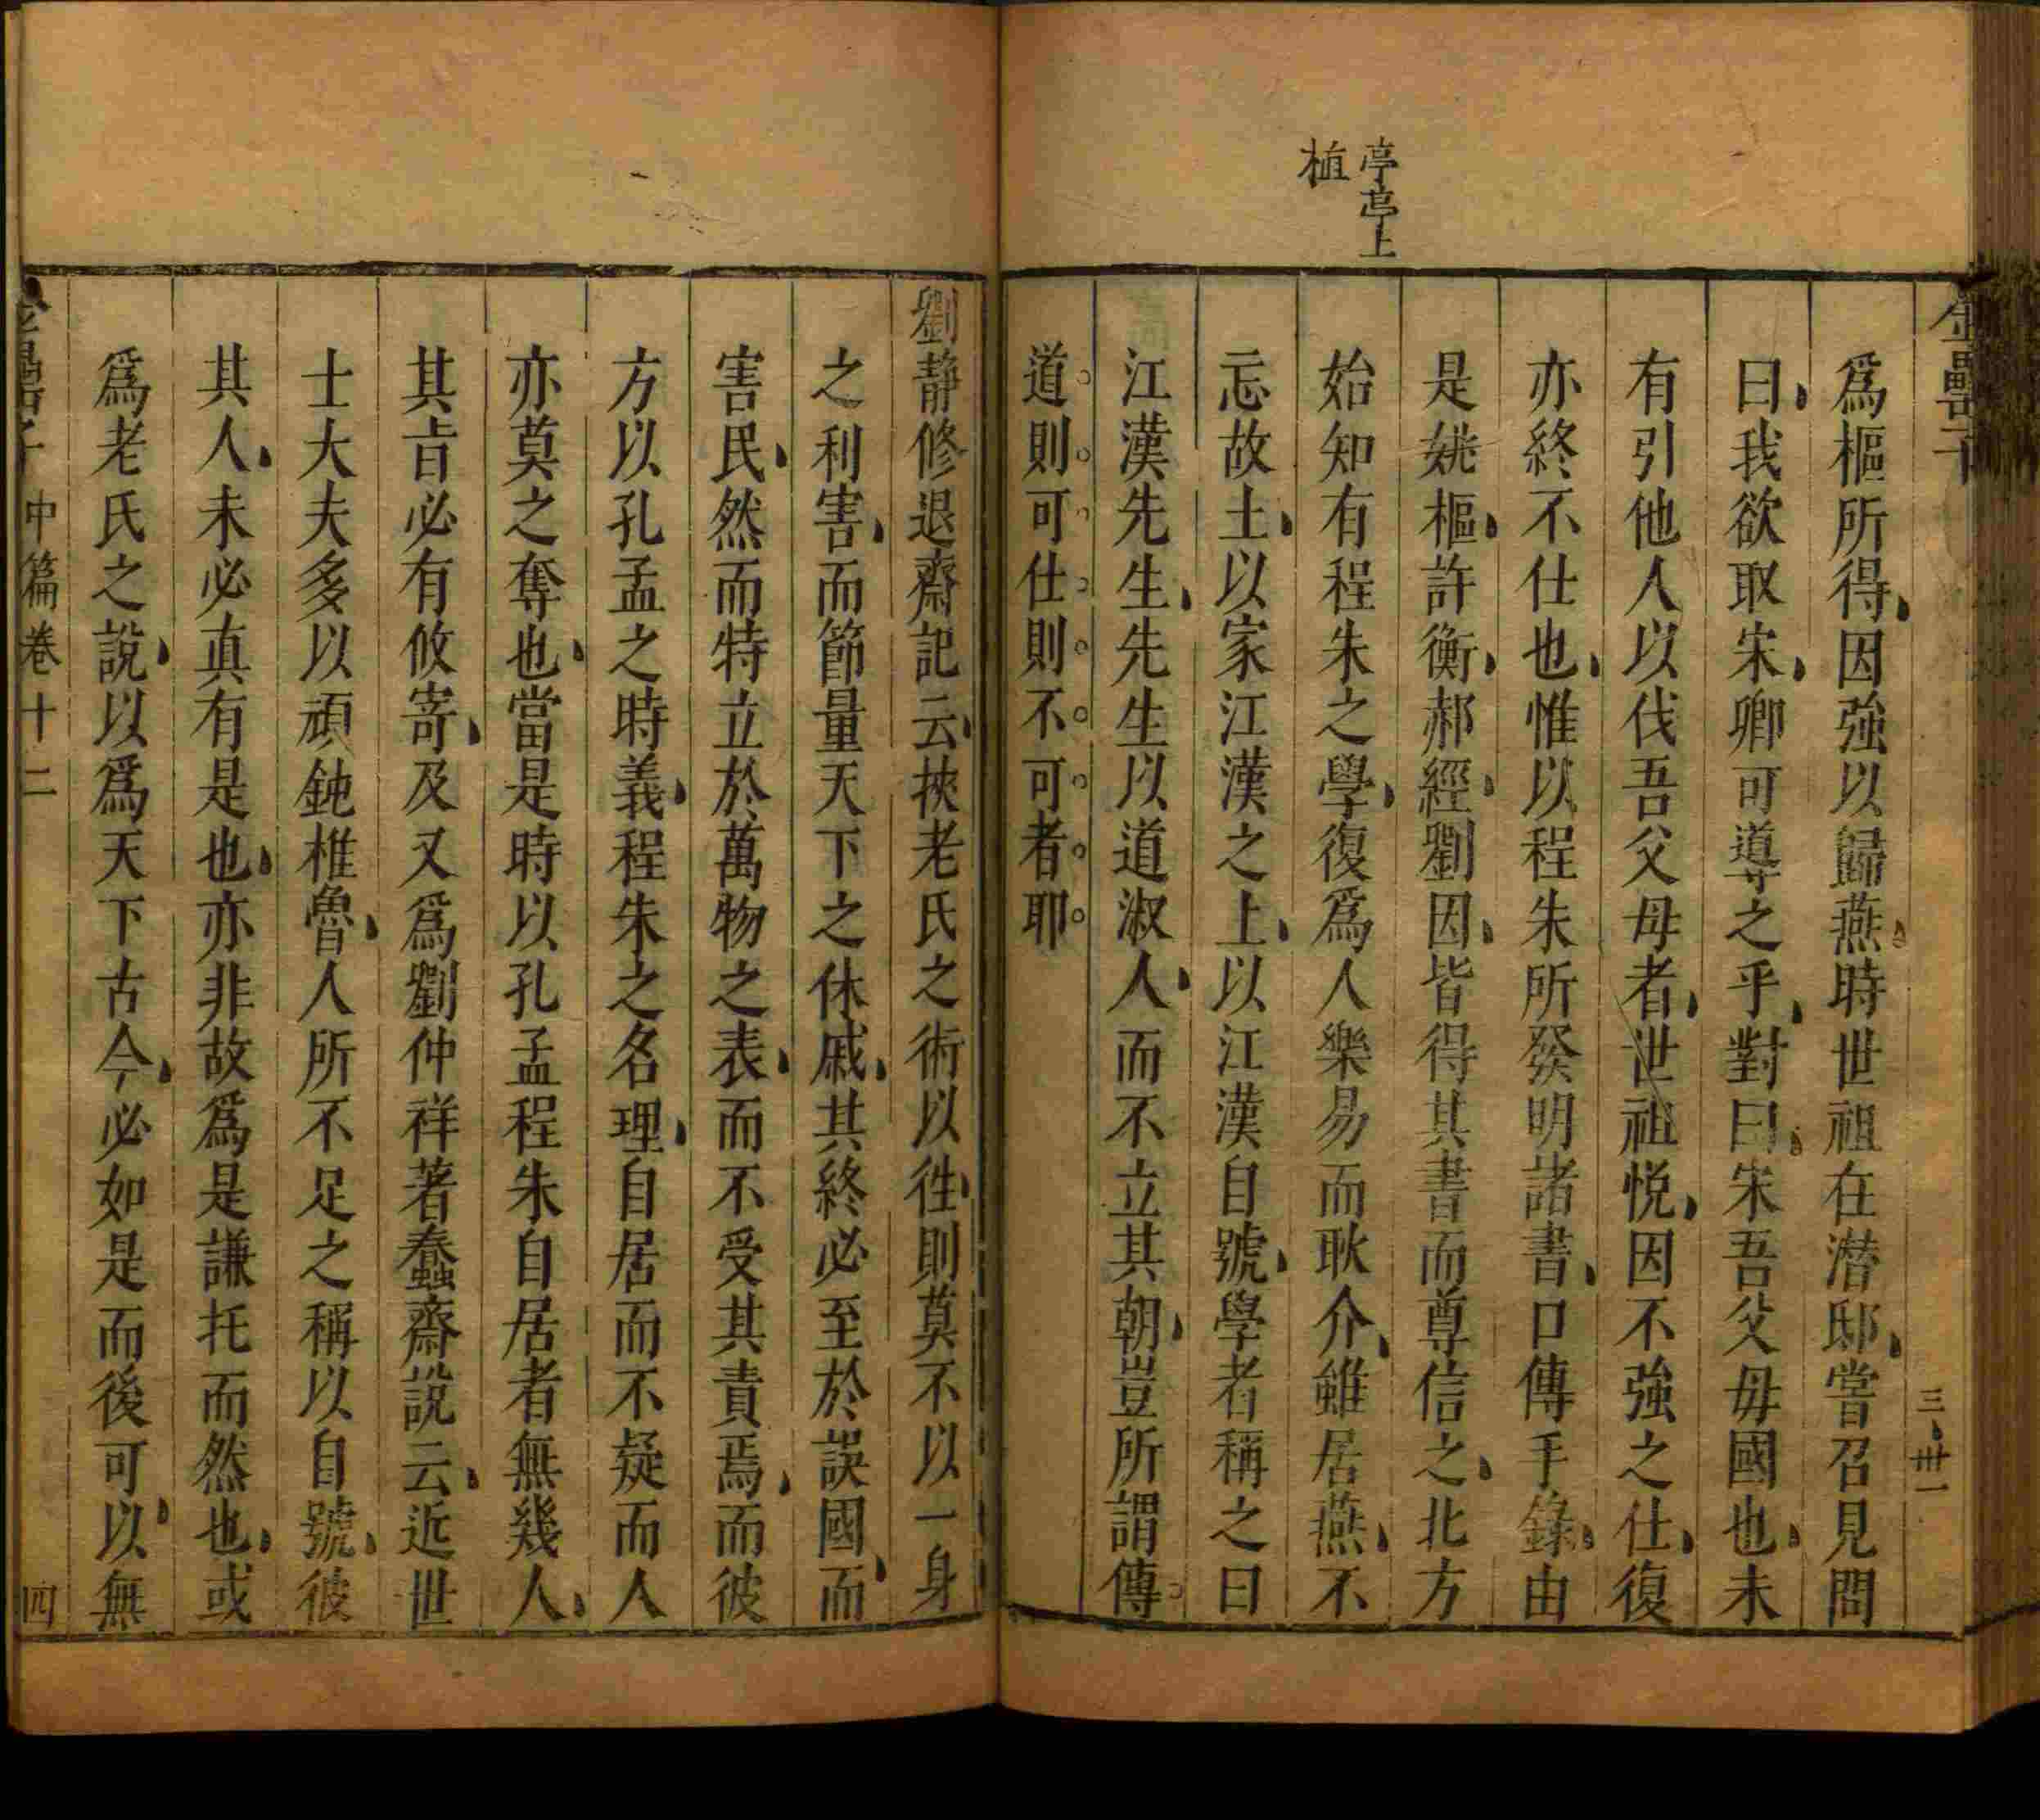 亭亭上
植
金罍子
三 卅一
爲樞所得因強以歸燕時世祖在潛邸嘗召見問
曰我欲取宋卿可導之乎對曰宋吾父母國也未
有引他人以伐吾父母者世祖悅因不強之仕復
亦終不仕也惟以程朱所發明諸書口傳手錄由
是姚樞許衡郝經劉因皆得其書而尊信之北方
始知有程朱之學復爲人樂易而耿介雖居燕不
忘故土以家江漢之上以江漢自號學者稱之曰
江漢先生先生以道淑人而不立其朝豈所謂傳
道則可仕則不可者耶
劉靜修退齋記云挾老氏之術以徃則莫不以一身
之利害而節量天下之休戚其終必至於誤國而
害民然而特立於萬物之表而不受其責焉而彼
方以孔孟之時義程朱之名理自居而不疑而人
亦莫之奪也當是時以孔孟程朱自居者無幾人
其㫖必有攸寄及又爲劉仲祥著蠢齋說云近世
士大夫多以頑鈍椎魯人所不足之稱以自號彼
其人未必真有是也亦非故爲是謙托而然也或
爲老氏之說以爲天下古今必如是而後可以無
金罍子 中篇卷十二 四